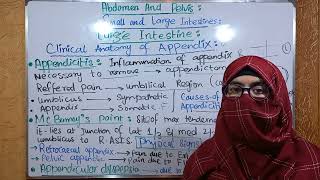 Abdomen And Pelvis:
Small and Large Intestines:
Large Intestine:
Clinical Anatomy of Appendix:
Appendicitis: Inflammation of appendix
Necessary to remove → appendictom
Reffered pain → umbilical Region (co
umbilicus → Sympathetic
Appendix → Somatic
Causes of
Appendicit
Mc Burney's point: Site of max tendern
it lies at junction of lat 1/3 & mod 2/
umbilicus to R. ASIS
Physical Signs
Retrocaecal appendix → Pain due to Ex
Pelvic appendix → Pain due to F
Appendicular dyspepsia → due